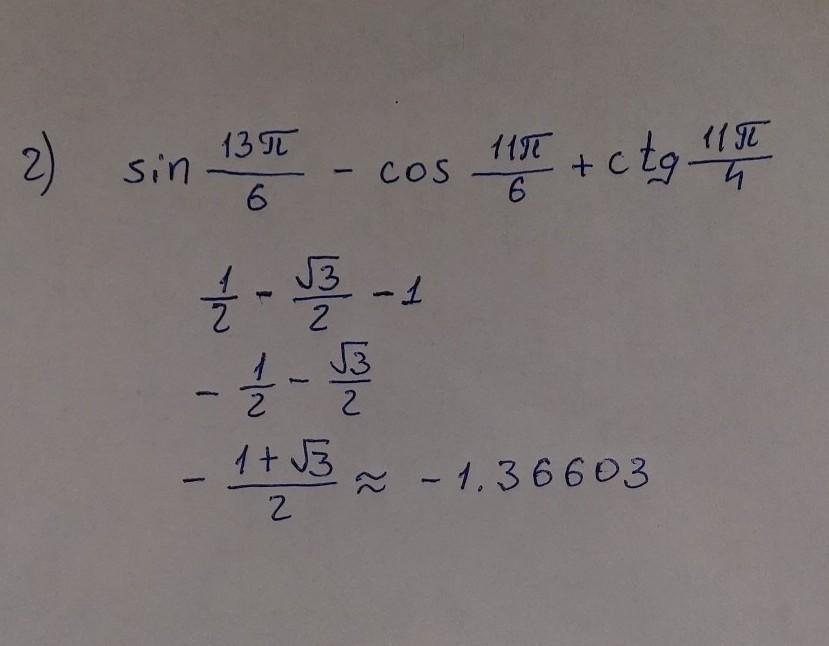 2) sin 13π/6 - cos 11π/6 + ctg 11π/4
1/2 - √3/2 - 1
- 1/2 - √3/2
- (1+√3)/2 ≈ -1.36603